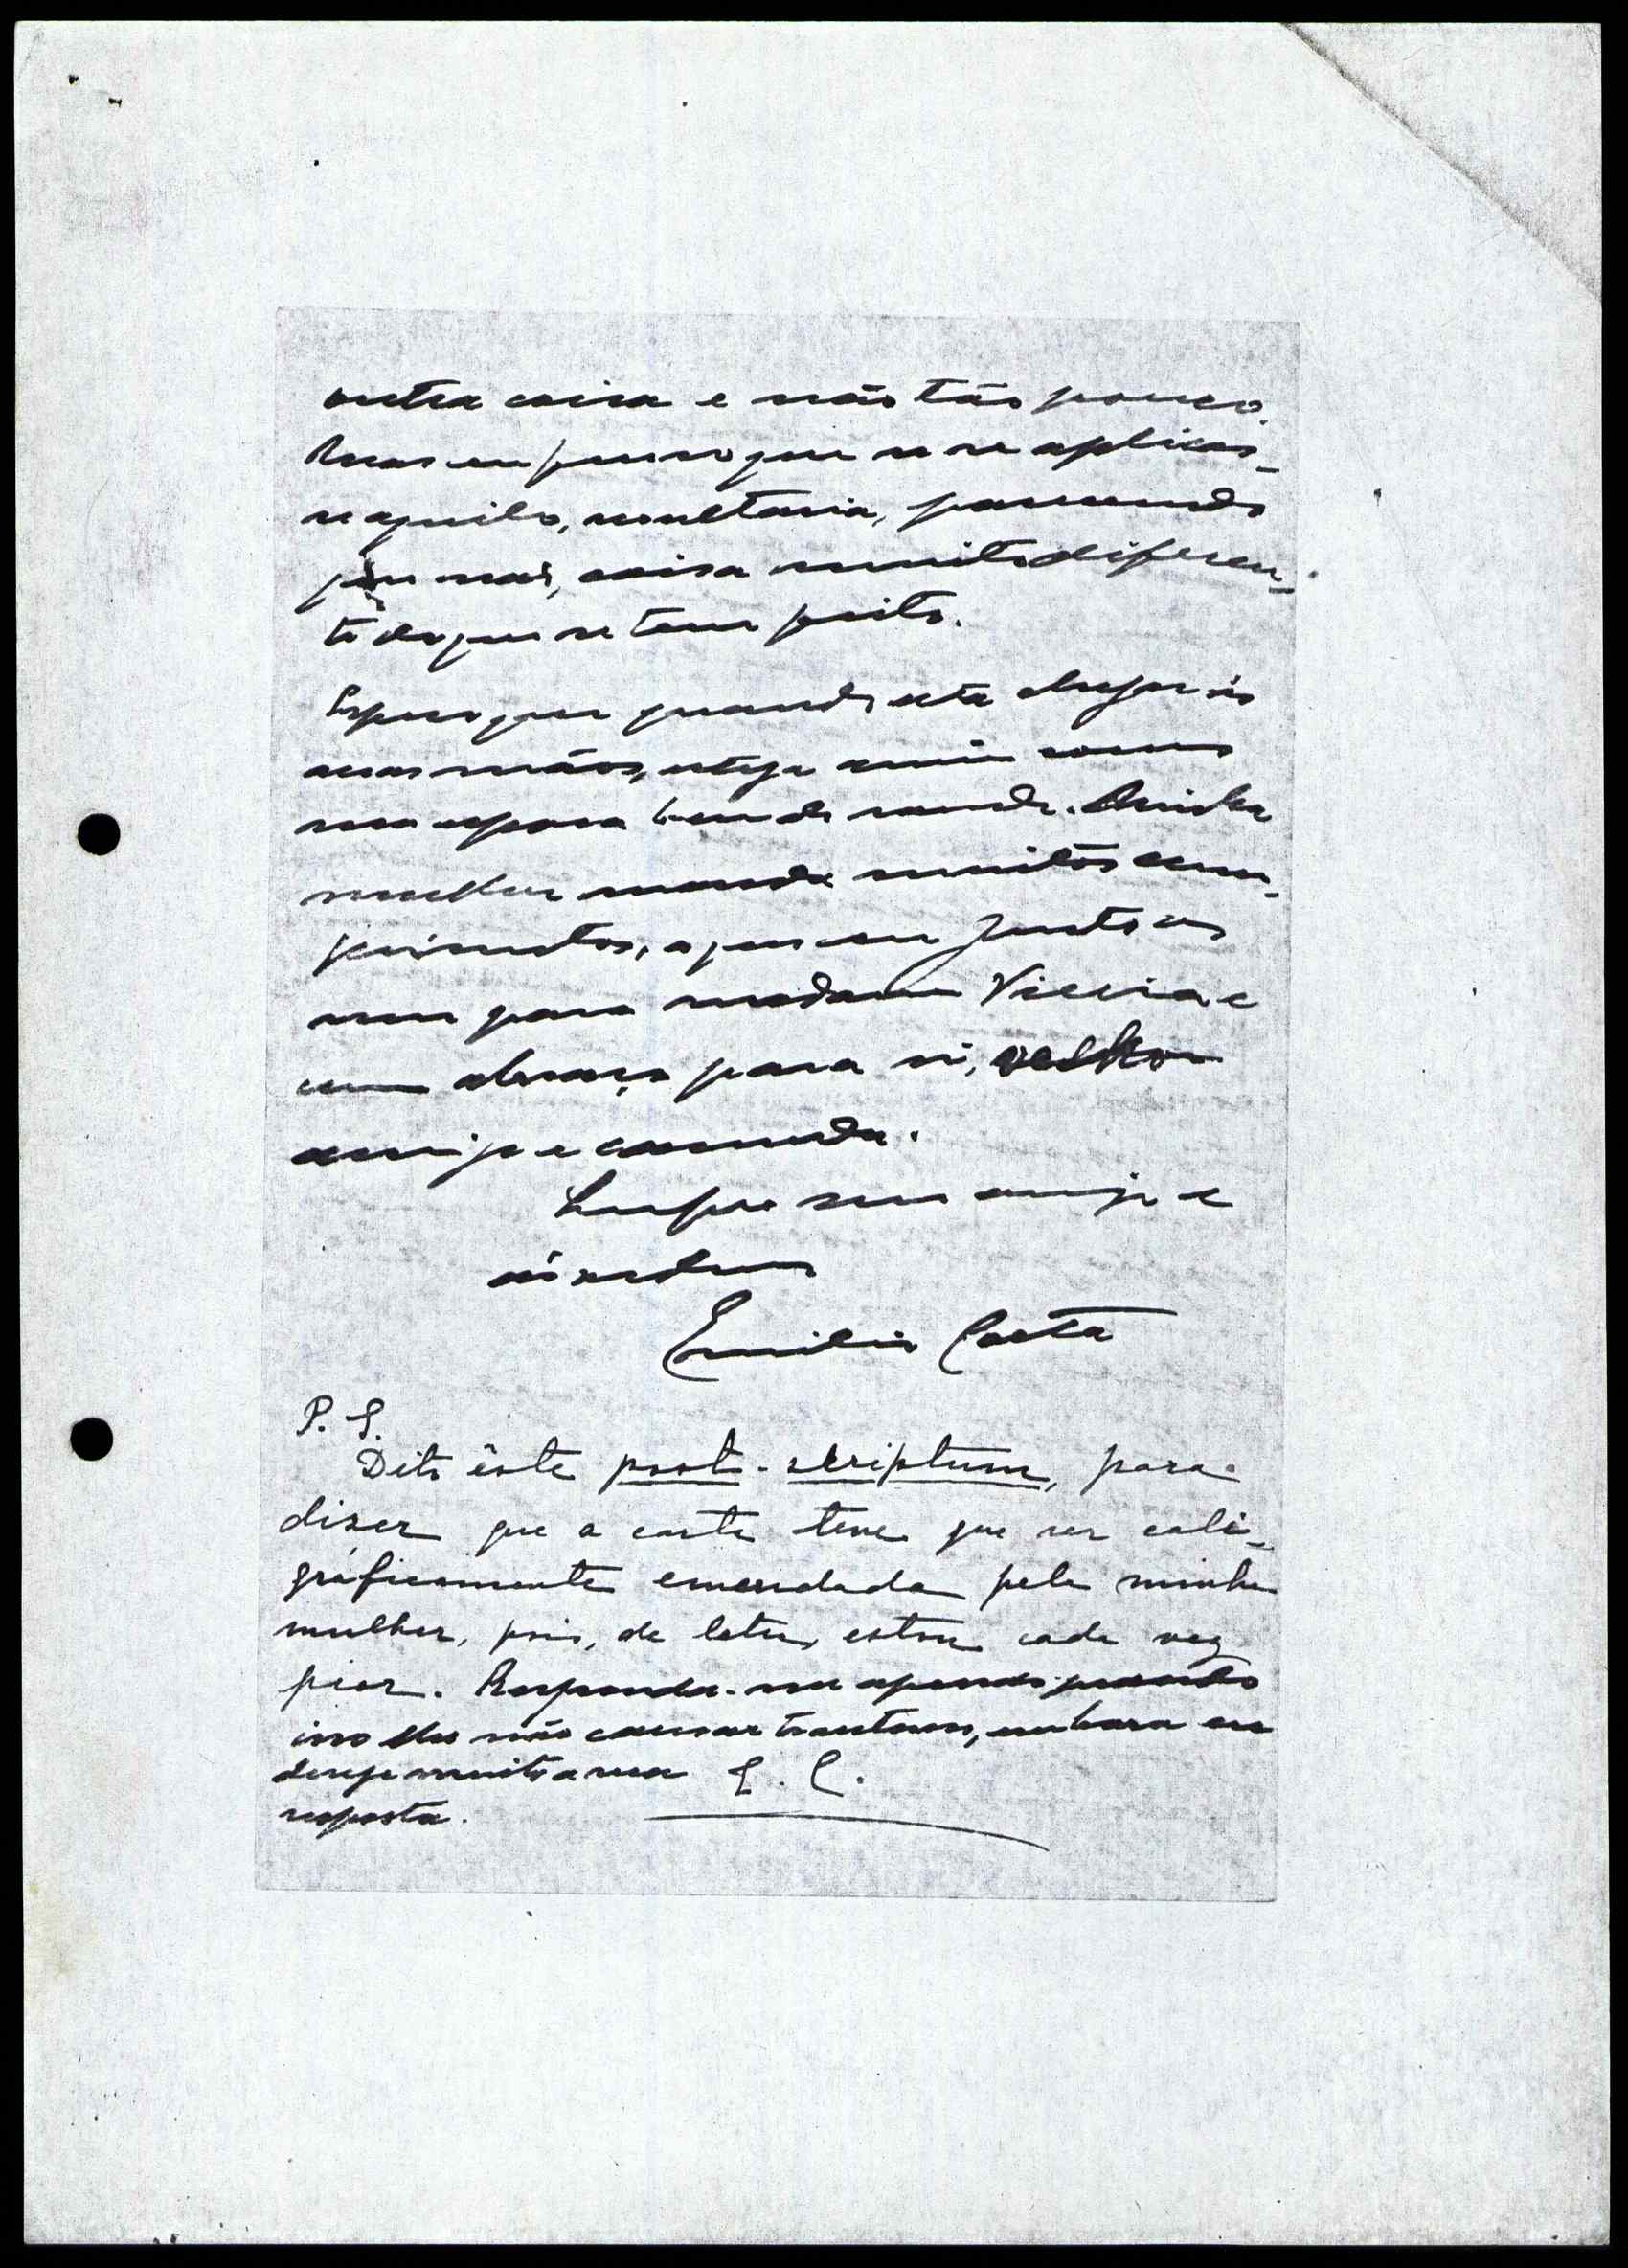 outra coisa e não tão pouco.
Mas eu penso que se se aplicas-
se aquilo, resultaria, parecendo
que não, coisa muito diferen-
te do que se tem feito.
Espero que quando esta chegar ás
suas mãos, esteja assim como
sua esposa bem de saude. Minha
mulher manda muitos cum-
primentos, a que eu junto os
meus para madame Vieira e
um abraço para si, velho
amigo e camarada.
Sempre seu amigo e
Emilio Costa
P. S.
Dito êste post-scriptum, para
dizer que a carta teve que ser cali-
gráficamente emendada pela minha
mulher, pois, de letra, estou cada vez
pior. Responda-me apenas quando
isso lhe não causar transtorno, embora eu
deseje muito a sua E. C.
resposta.